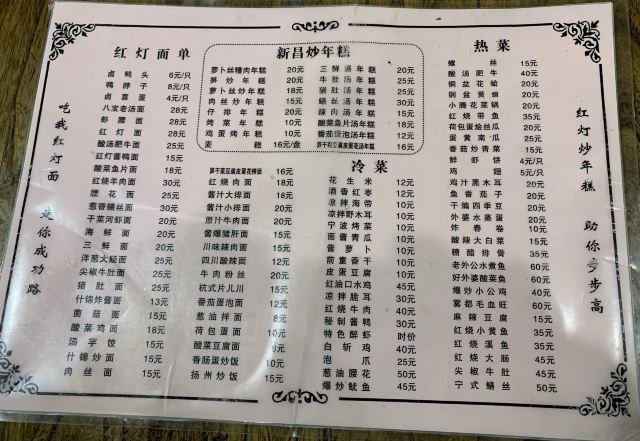 吃我红灯面
变你成功路
红灯面单
卤鸭头 6元/只
鸭脖子 8元/只
卤喜蛋 4元/只
八宝老汤面 28元
虾腰面 28元
红灯面 28元
酸汤肥牛面 25元
红灯酱鸭面 15元
酸菜鱼片面 18元
红烧羊肉面 30元
腰花面 25元
葱香鳝丝面 30元
干菜河虾面 20元
海鲜面 20元
三鲜面 20元
洋葱大肠面 25元
尖椒牛肚面 25元
猪肚面 25元
什锦炸酱面 13元
菌菇面 15元
酸菜鸡面 18元
汤羊饺 15元
什锦炒面 15元
肉丝面 15元
新昌炒年糕
萝卜丝糟肉年糕 20元
笋炒年糕 20元
萝卜丝炒年糕 18元
肉丝炒年糕 15元
仔排年糕 20元
烤菜年糕 10元
鸡蛋烤年糕 10元
麦糕 16元/盘
三鲜汤年糕 20元
牛肚汤年糕 25元
猪肚汤年糕 25元
鳝丝汤年糕 30元
辣肉汤年糕 15元
酸菜鱼片汤年糕 18元
番茄蛋泡汤年糕 12元
16元
16元
红烧肉面 18元
酱汁大排面 18元
酱汁小排面 20元
原汁牛肉面 20元
酱爆猪肝面 15元
川味辣肉面 15元
四川酸辣面 12元
牛肉粉丝 20元
杭式片儿川 15元
番茄蛋泡面 12元
葱油拌面 8元
荷包蛋面 10元
酸菜豆腐面 8元
香肠蛋炒饭 10元
扬州炒饭 15元
冷菜
花生米 12元
酒香红枣 12元
凉拌海带 10元
凉拌野木耳 10元
宁波烤菜 10元
面酱青瓜 10元
酱萝卜 10元
前童香干 10元
皮蛋豆腐 10元
红油口水鸡 45元
凉拌脆耳 30元
红烧牛肉 40元
秘制酱鸭 30元
特色醉虾 时价
白斩鸡 40元
泡爪 25元
葱油腰花 50元
爆炒鱿鱼 45元
热菜
螺丝 15元
酸汤肥牛 40元
铜盆花蛤 20元
铜盆黄蚬 20元
小腾花菜锅 20元
红烧带鱼 35元
荷包蛋烩丝瓜 20元
蛋黄南瓜 25元
香菇炒青菜 15元
鲜虾饼 4元/只
鸡翅 5元/只
鸡汁黑木耳 20元
鱼香茄子 20元
干煸四季豆 20元
外婆水蒸蛋 20元
炸春卷 10元
酸辣大白菜 15元
糖醋排骨 35元
老外公水煮鱼 60元
好外婆酸菜鱼 60元
爆炒小公鸡 40元
雾都毛血旺 60元
麻辣豆腐 15元
红烧小黄鱼 35元
红烧溪鱼 35元
红烧大肠 45元
尖椒牛肚 45元
宁式鳝丝 50元
红灯炒年糕
助你步步高